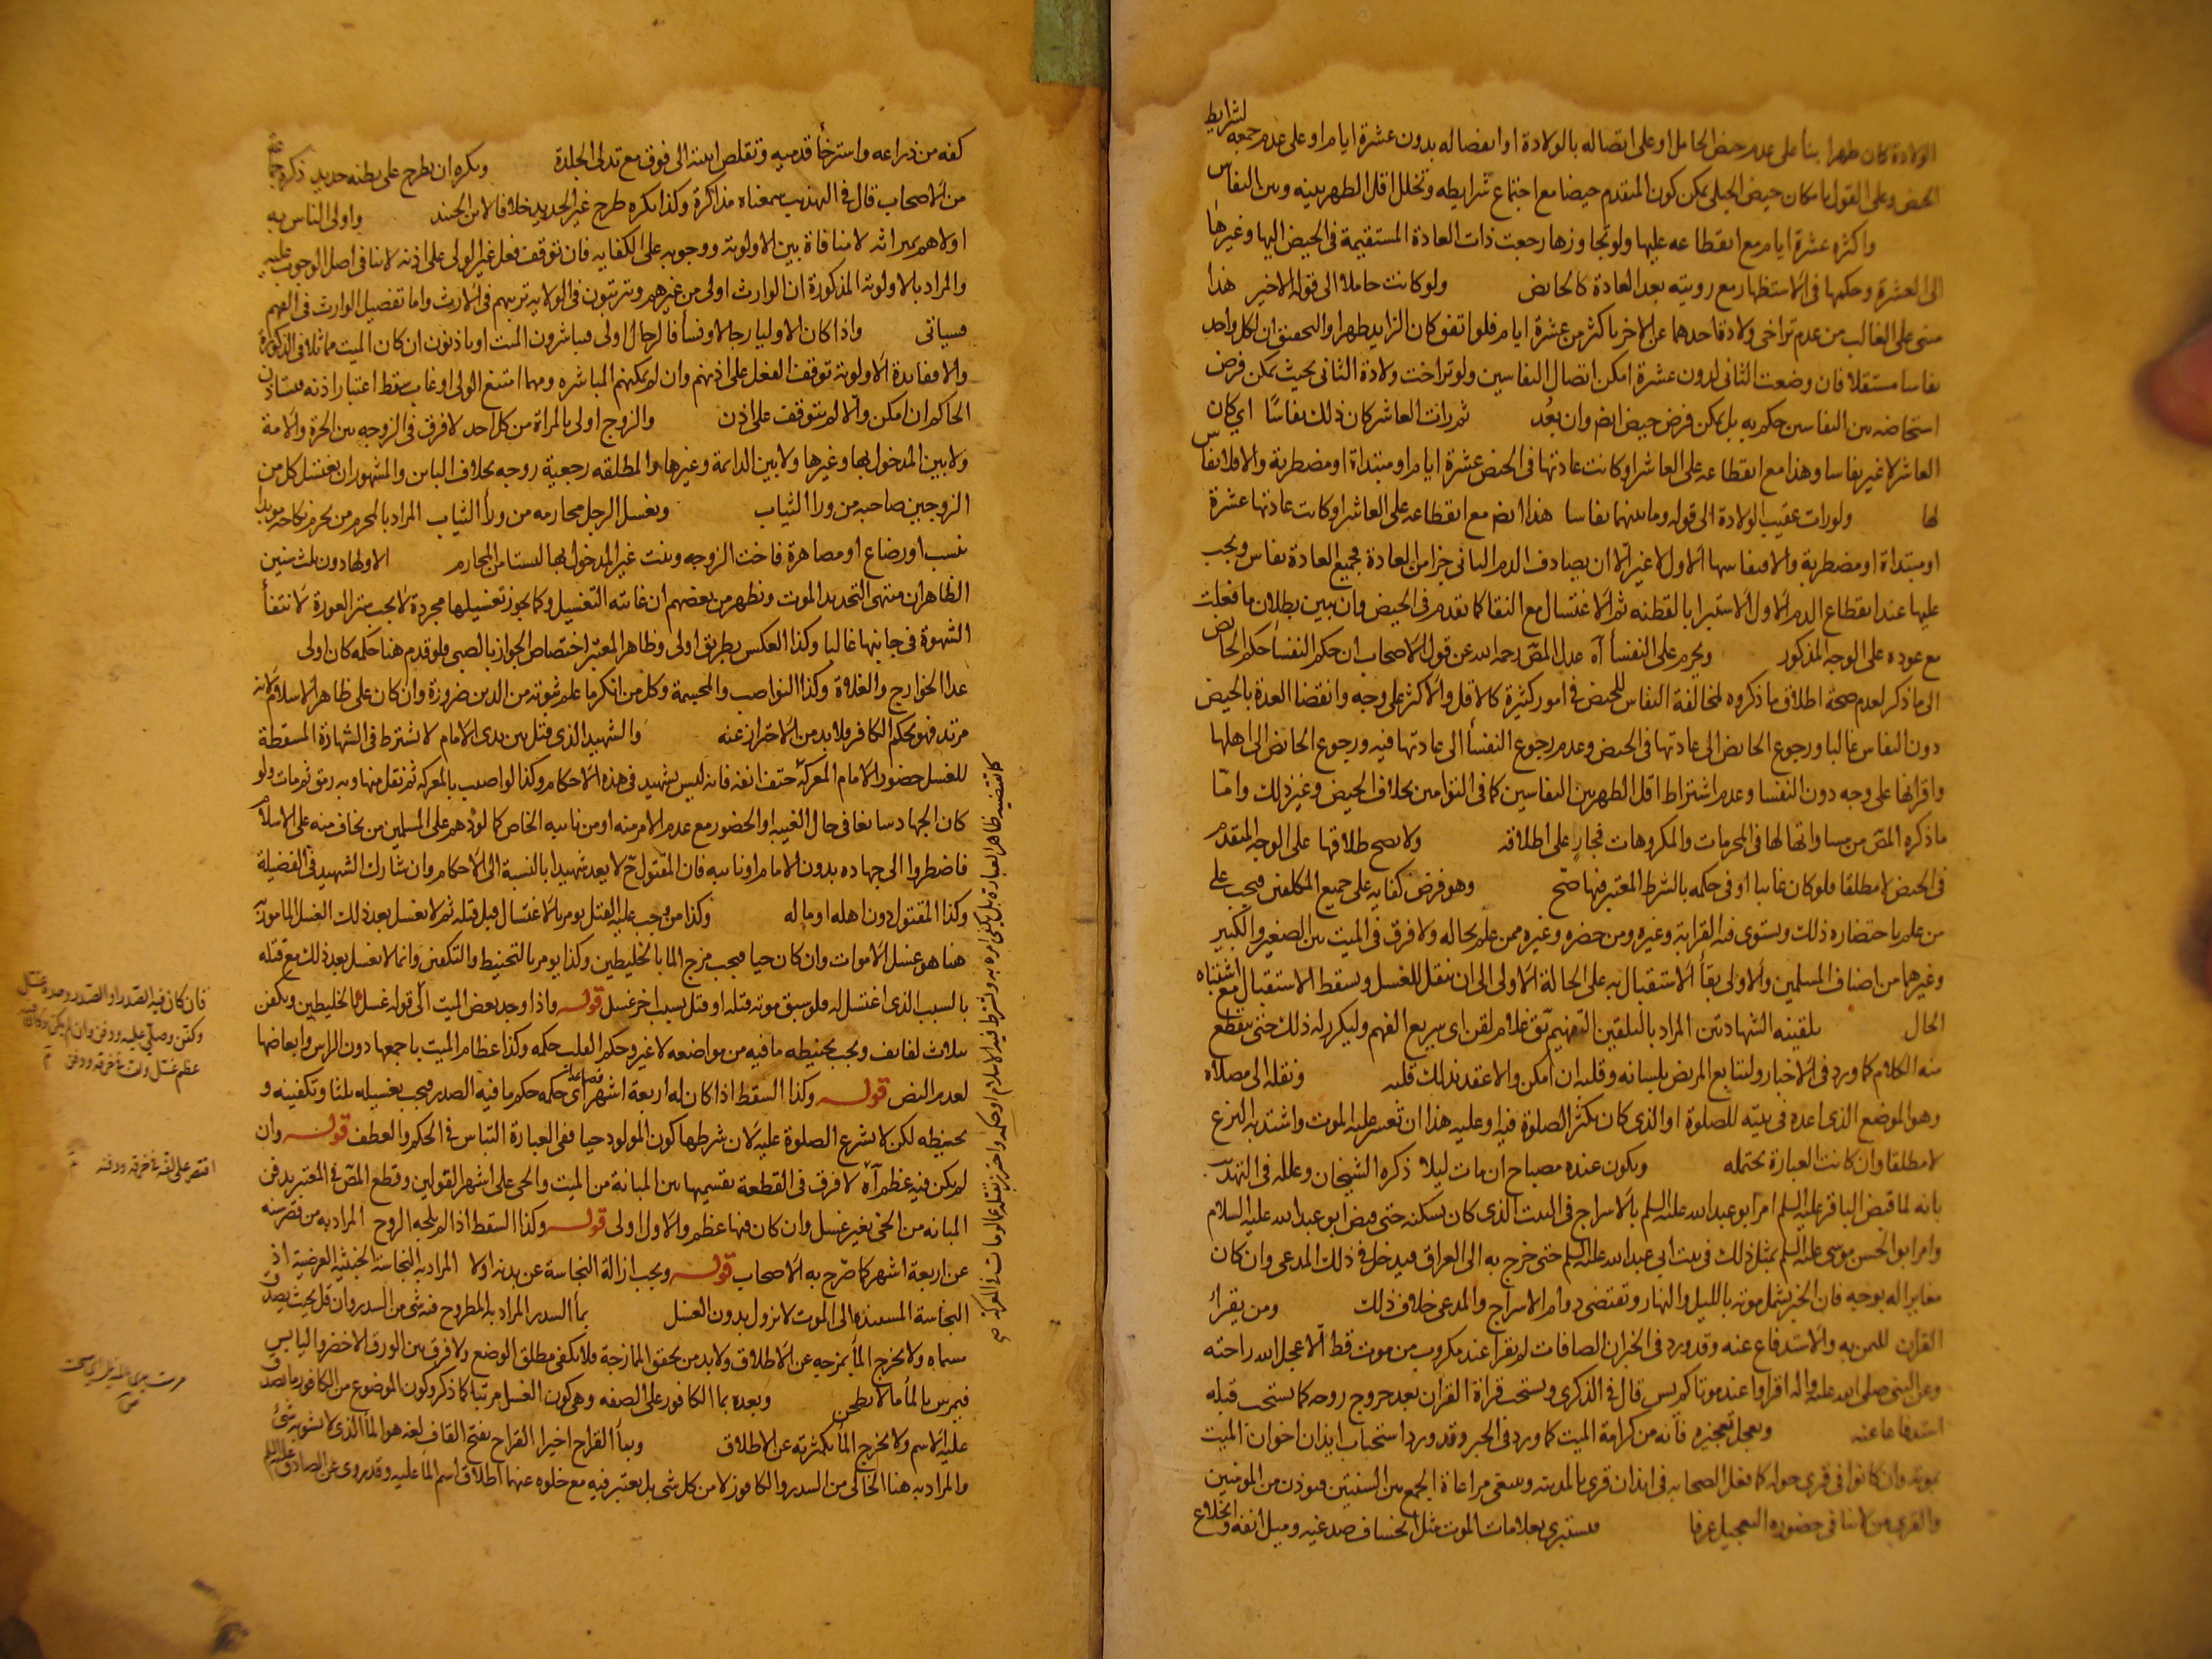 لشرايط
الولادة كان طهرا بنأ على عدم حيض الحامل او على اتصاله بالولادة او انفصاله بدون عشرة ايام او على عدم جمعه
الحيض وعلى القول بامكان حيض الحبلى يمكن كون المتقدم حيضا مع اجتماع شرايطه وتخلل اقل الطهر بينه وبين النفاس
واكثره عشرة ايام مع انقطاعه عليها ولو تجاوزها رجعت ذات العادة المستقيمة في الحيض اليها وغيرها
الى العشرة وحكمها في الاستظهار مع رويته بعد العادة كالحايض ولو كانت حاملا الى قوله الاخير هذا
مبنى على الغالب من عدم تراخى ولادة احدهما عن الاخر باكثر من عشرة ايام فلو اتفق كان الزايد طهرا والتحقيق ان لكل واحد
نفاسا مستقلا فان وضعت الثانى لدون عشرة امكن اتصال النفاسين ولو تراخت ولادة الثانى بحيث يمكن فرض
استحاضة بين النفاسين حكم به بل يمكن فرض حيض ايضم وان بعد ثم رات العاشر كان ذلك نفاسا اي كان
العاشر لا غير نفاسا وهذا مع انقطاعه على العاشر او كانت عادتها في الحيض عشرة ايام او مبتداة او مضطربة والا فلا نفاس
لها ولو رات عقيب الولادة الى قوله وما بينهما نفاسا هذا ايضم مع انقطاعه على العاشر او كانت عادتها عشرة
او مبتداة او مضطربة والا فنفاسها الاول لا غير الا ان يصادف الدم الثانى جزا من العادة فجميع العادة نفاس ويجب
عليها عند انقطاع الدم الاول الاستبرا بالقطنه ثم الاغتسال مع النقا كما تقدم في الحيض وان تبين بطلان ما فعلت
مع عوده على الوجه المذكور ويحرم على النفسأ آه عدل المصّ رحمه الله عن قول الاصحاب ان حكم النفسأ حكم الحايض
الى ما ذكر لعدم صحة اطلاق ما ذكروه لمخالفة النفاس للحيض في امور كثيرة كالاقل والاكثر على وجه وانقضا العدة بالحيض
دون النفاس غالبا ورجوع الحايض الى عادتها في الحيض وعدم رجوع النفسأ الى عادتها فيه ورجوع الحايض الى اهلها
واقرانها على وجه دون النفسا وعدم اشتراط اقل الطهر بين النفاسين كما في التوامين بخلاف الحيض وغير ذلك وامّا
ما ذكره المصّ من مساواتها لها في المحرمات والمكروهات فجار على اطلاقه ولا يصح طلاقها على الوجه المتقدم
في الحيض لا مطلقا فلو كان غايبا او في حكمه بالشرط المعتبر فيها صحّ وهو فرض كفايه على جميع المكلفين فيجب على
من علم باحتضاره ذلك ويستوى فيه القرابة وغيره ومن حضره وغيره ممن علم بحاله ولا فرق في الميت بين الصغير والكبير
وغيرهما من اصناف المسلمين والاولى بقأ الاستقبال به على الحالة الاولى الى ان ينقل للغسل ويسقط الاستقبال مع اشتباه
الحال تلقينه الشهادتين المراد بالتلقين التفهيم يقّ غلام لقن اى سريع الفهم وليكرر له ذلك حتى ينقطع
منه الكلام كما ورد في الاخبار وليتابع المريض بلسانه وقلبه ان امكن والا عقد بذلك قلبه ونقله الى مصلاه
وهو الموضع الذى اعده في بيته للصلوة او الذى كان يكثر الصلوة فيه او عليه هذا ان تعسر عليه الموت واشتد به النزع
لا مطلقا وان كانت العبارة يحتمله ويكون عنده مصباح ان مات ليلا ذكره الشيخان وعلله في التهذيب
بانه لما قبض الباقر عليه السلم امر ابو عبد الله عليه السلم بالاسراج في البيت الذى كان يسكنه حتى قبض ابو عبد الله عليه السلام
وامر ابو الحسن موسى عليه السلم بمثل ذلك في بيت ابى عبد الله عليه السلم حتى خرج به الى العراق فيدخل في ذلك المدعى وان كان
مغايرا له بوجه فان الخبر يشمل موته بالليل والنهار وتقتضى دوام الاسراج والمدعى خلاف ذلك ومن يقرأ
القرآن للتيمن به والاستدفاع عنه وقد ورد في الخبر ان الصافات لم يقرا عند مكروب من موت قط الا عجل الله راحته
وعن النبى صلى الله عليه واله اقراوا عند موتاكم يس قال في الذكرى ويستحب قراة القرآن بعد خروج روحه كما يستحب قبله
استدفاعا عنه ويعجل تجهيزه فانه من كرامة الميت كما ورد في الخبر وقد ورد استحباب ايذان اخوان الميت
بموته وان كانوا في قرى حوله كما فعل الصحابه في ايذان قرى المدينه وينبغى مراعاة الجمع بين السنتين فيوذن من المومنين
والقرى من لا ينافى حضوره التعجيل عرفا فيستبرى بعلامات الموت مثل انخساف صدغيه وميل انفه وانخلاع
كفه من ذراعه واسترخأ قدميه وتقلص انثييه الى فوق مع تدلى الجلدة ويكره ان يطرح على بطنه حديد ذكره جماعة
من الاصحاب قال في التهذيب سمعناه مذاكرة وكذا يكره طرح غير الحديد خلافا لابن الجنيد واولى الناس به
اولاهم بميراثه لا منافاة بين الاولوية ووجوبه على الكفايه فان توقف فعل غير الولى على اذنه لا ينافى اصل الوجوب عليه
والمراد بالاولوية المذكورة ان الوارث اولى من غيرهم ويترتبون في الولايه ترتبهم في الارث واما تفصيل الوارث في انفسهم
فسياتى واذا كان الاوليا رجالا ونسأ فالرجال اولى فيباشرون الميت او ياذنون ان كان الميت مماثلا في الذكورة
والا ففايدة الاولوية توقف الفعل على اذنهم وان لم يمكنهم المباشرة ومهما امتنع الولى او غاب سقط اعتبار اذنه فيستاذن
الحاكم ان امكن والّا لم يتوقف على اذن والزوج اولى بالمراة من كل احد لا فرق في الزوجه بين الحرة والامة
ولا بين المدخول بها وغيرها ولا بين الدايمة وغيرها والمطلقه رجعية زوجه بخلاف الباين والمشهور ان يغسل كل من
الزوجين صاحبه من ورا الثياب ويغسل الرجل محارمه من ورأ الثياب المراد بالمحرم من يحرم نكاحه موبدا
بنسب او رضاع او مصاهرة فاخت الزوجه وبنت غير المدخول بها ليستا من المحارم الا ولها دون ثلث سنين
الظاهر ان منتهى التحديد الموت ويظهر من بعضهم ان غايته التغسيل وكما يجوز تغسيلها مجردة لا يجب ستر العورة لانتفأ
الشهوة في جانبها غالبا وكذا العكس بطريق اولى وظاهر المعتبر اختصاص الجواز بالصبى فلو قدم هنا حكمه كان اولى
عدا الخوارج والغلاة وكذا النواصب والمجسمة وكل من انكر ما علم ثبوته من الدين ضرورة وان كان على ظاهر الاسلام لانه
مرتد فهو بحكم الكافر فلا بد من الاحتراز عنه والشهيد الذى قتل بين يدى الامام لا يشترط في الشهادة المسقطة
للغسل حضور الامام المعركة حتف انفه فانه ليس بشهيد في هذه الاحكام وكذا لو اصيب بالمعركه ثم نقل منها وبه رمق ثم مات ولو
كان الجهاد سائغا في حال الغيبه او الحضور مع عدم الامر منه او من نايبه الخاص كما لو دهم على المسلمين من يخاف منه على الاسلام
فاضطروا الى جهاده بدون الامام او نايبه فان المقتول ح لا يعد شهيدا بالنسبة الى الاحكام وان شارك الشهيد في الفضيلة
وكذا المقتول دون اهله او ماله وكذا من وجب عليه القتل يومر بالاغتسال قبل قتله ثم لا يغسل بعد ذلك الغسل المامور به
هنا هو غسل الاموات وان كان حيا فيجب مزج الما بالخليطين وكذا يومر بالتحنيط والتكفين وانما لا يغسل بعد ذلك مع قتله
بالسبب الذى اغتسل له فلو سبق موته قتله او قتل بسبب اخر غسل قوله واذا وجد بعض الميت الى قوله غسل الخليطين ويكفن
بثلاث لفايف ويجب تحنيطه ما فيه من مواضعه لا غير وحكم القلب حكمه وكذا عظام الميت باجمعها دون الراس وابعاضها
لعدم النص قوله وكذا السقط اذا كان له اربعة اشهر فصاعدا اى حكمه حكم ما فيه الصدر فيجب تغسيله ثلثا وتكفينه و
تحنيطه لكن لا تشرع الصلوة عليه لان شرطها كون المولود حيا ففى العبارة التباس في الحكم والعطف قوله وان
لم يكن فيه عظم آه لا فرق في القطعة بقسميها بين المبانة من الميت والحى على اشهر القولين وقطع المصّ في المعتبر بدفن
المبانه من الحى بغير غسل وان كان فيها عظم والاول اولى قوله وكذا السقط اذا لم تلجه الروح المراد به من قصر سنه
عن اربعة اشهر كما صرّح به الاصحاب قوله ويجب ازالة النجاسة عن بدنه اولا المراد به النجاسة الخبثيه العرضية اذ
النجاسة المستندة الى الموت لا تزول بدون الغسل بمأ السدر المراد به المطروح فيه شى من السدر وان قل بحيث يصدق
مسماه ولا يخرج المأ بمزجه عن الاطلاق ولا بد من تحقق الممازجة فلا يكفى مطلق الوضع ولا فرق بين الورق الاخضر واليابس
فيمرس بالمأ ما لا يطحن وبعده بما الكافور على الصفه وهى كون الغسل مرتبا كما ذكر وكون الموضوع من الكافور ما يصدق
عليه الاسم ولا يخرج المأ بكثرته عن الاطلاق وبمأ القراح اخيرا القراح بفتح القاف لغة هو المأ الذى لا يشوبه شئ
والمراد به هنا الخالى من السدر والكافور لا من كل شى بل يعتبر فيه مع خلوه عنهما اطلاق اسم الما عليه وقد روى عن الصادق عليه السلم
فان كان فيه الصدر او الصدر وحده غسل
وكفن وصلى عليه ودفن وان لم يكن وكان فيه
عظم غسل ولف في خرقة ودفن
اقتصر على لفه في خرقة ودفنه